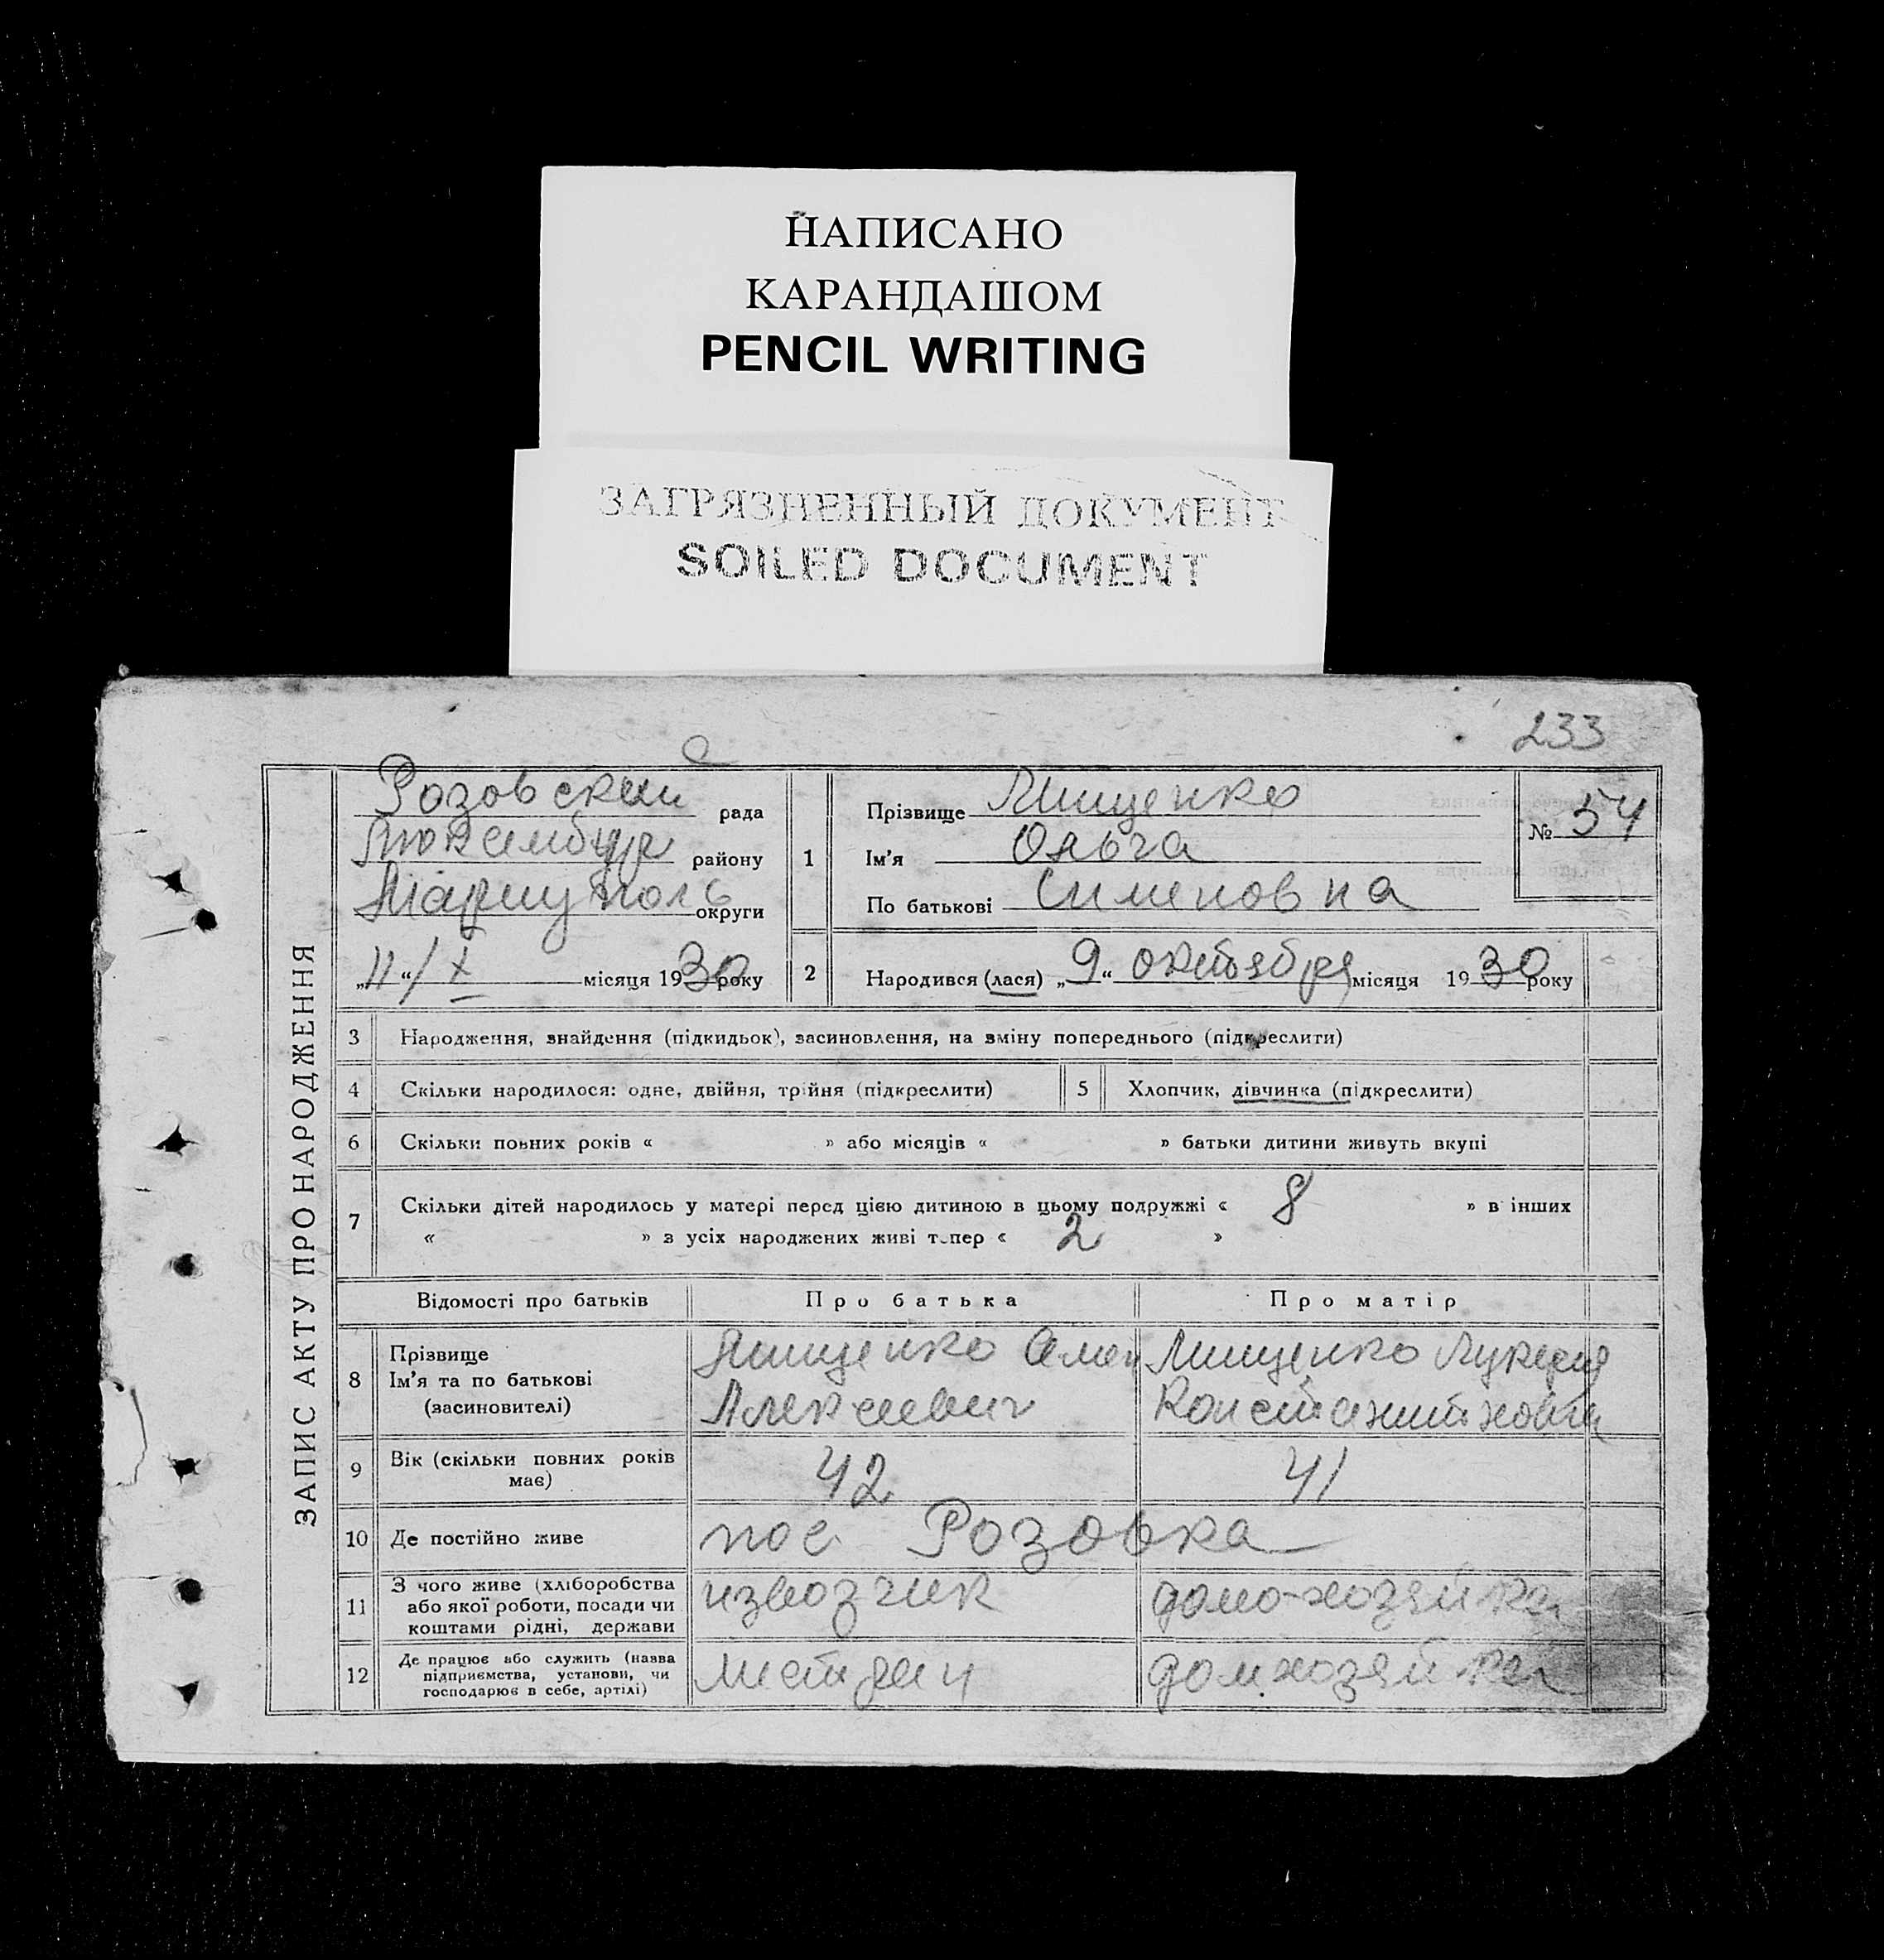 НАПИСАНО
КАРАНДАШОМ
PENCIL WRITING
ЗАГРЯЗНЕННЫЙ ДОКУМЕНТ
SOILED DOCUMENT
233
ЗАПИС АКТУ ПРО НАРОДЖЕННЯ
Розовский рада
району
Мариуполь округи
„11“ / X місяця 1930 року
1
Прізвище Мищенко
Ім’я Ольга
По батькові Сименовна
№ 54
2
Народився (лася) „9“ октября місяця 1930 року
3 Народження, знайдення (підкидьок), засиновлення, на зміну попереднього (підкреслити)
4 Скільки народилося: одне, двійня, трійня (підкреслити) 5 Хлопчик, дівчинка (підкреслити)
6 Скільки повних років « » або місяців « » батьки дитини живуть вкупі
7 Скільки дітей народилось у матері перед цією дитиною в цьому подружжі « 8 » в інших
« » з усіх народжених живі тепер « 2 »
Відомості про батьків Про батька Про матір
8 Прізвище
Ім’я та по батькові
(засиновителі)
Мищенко
Алексеевич
Мищенко
Константиновна
9 Вік (скільки повних років
має)
42 41
10 Де постійно живе пос Розовка
11 З чого живе (хліборобства
або якої роботи, посади чи
коштами рідні, держави
извозчик домо-хозяйка
12 Де працює або служить (назва
підприємства, установи, чи
господарює в себе, артілі)
домхозяйка